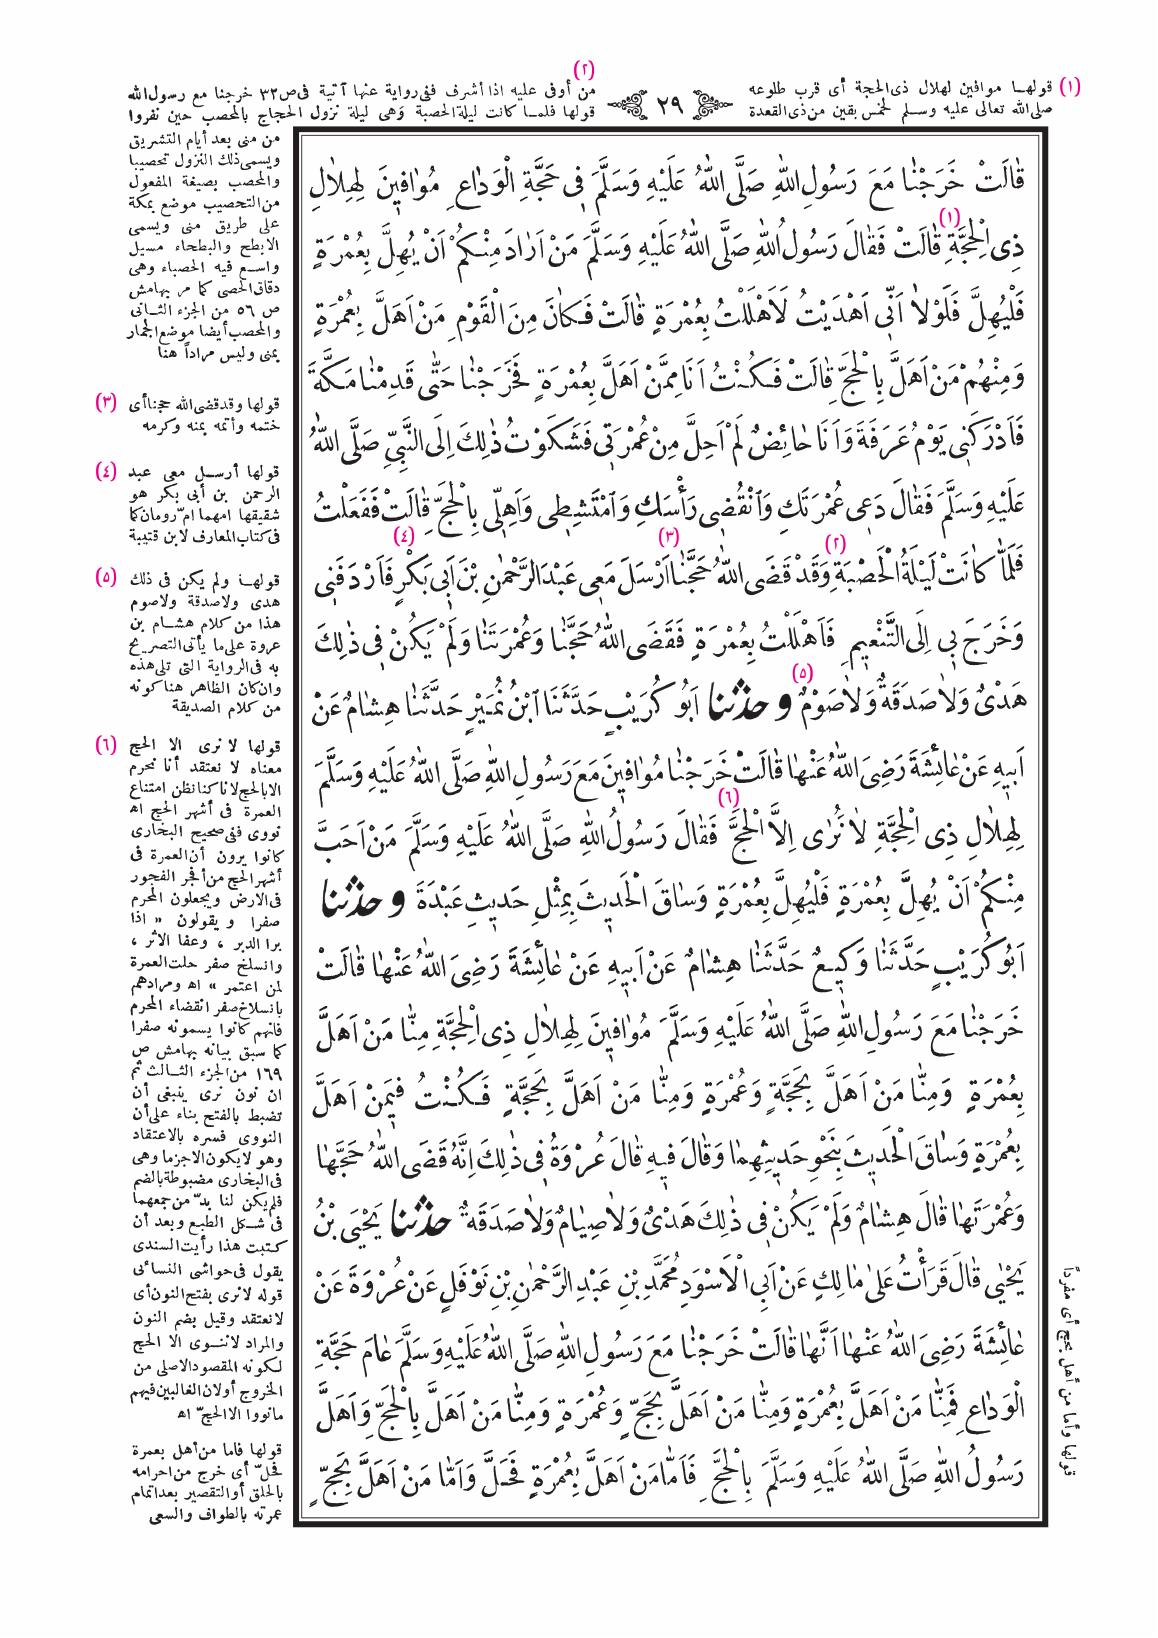 (١) قولهـا موافين لهلال ذى الحجة أى قرب طلوعه
صلى الله تعالى عليه وسـلم لخمس بقين من ذى القعدة
٢٩
(٢)
من أوفى عليه اذا أشرف ففى رواية عنها آتية فى ص ٣٢ خرجنا مع رسول الله
قولها فلمـا كانت ليلة الحصبة وهى ليلة نزول الحجاج بالمحصب حين نفروا
من منى بعد أيام التشريق
ويسمى ذلك النزول تحصيبا
والمحصب بصيغة المفعول
من التحصيب موضع بمكة
على طريق منى ويسمى
الابطح والبطحاء مسيل
واسـع فيه الحصباء وهى
دقاق الحصى كما مر بهامش
ص ٥٦ من الجزء الثـانى
والمحصب أيضا موضع الجمار
بمنى وليس مراداً هنا
(٣) قولها وقد قضى الله حجنا أى
ختمه وأتمه بمنه وكرمه
(٤) قولها أرسـل معى عبد
الرحمن بن أبى بكر هو
شقيقها امهما امّ رومان كما
فى كتاب المعارف لابن قتيبة
(٥) قولهـا ولم يكن فى ذلك
هدى ولا صدقة ولا صوم
هذا من كلام هشـام بن
عروة على ما يأتى التصريح
به فى الرواية التى تلى هذه
وان كان الظاهر هنا كونه
من كلام الصديقة
(٦) قولها لا نرى الا الحج
معناه لا نعتقد أنا نحرم
الا بالحج لانا كنا نظن امتناع
العمرة فى أشهر الحج اه
نووى ففى صحيح البخارى
كانوا يرون أن العمرة فى
أشهر الحج من أفجر الفجور
فى الارض ويجعلون المحرم
صفرا ويقولون « اذا
برا الدبر ، وعفا الاثر ،
وانسلخ صفر حلت العمرة
لمن اعتمر » اه ومرادهم
بانسلاخ صفر انقضاء المحرم
فانهم كانوا يسمونه صفرا
كما سبق بيانه بهامش ص
١٦٩ من الجزء الثـالث ثم
ان نون نرى ينبغى أن
تضبط بالفتح بناء على أن
النووى فسره بالاعتقاد
وهو لا يكون الا جزما وهى
فى البخارى مضبوطة بالضم
فلم يكن لنا بدّ من جمعهما
فى شـكل الطبع وبعد أن
كـتبت هذا رأيت السندى
يقول فى حواشى النسائى
قوله لا نرى بفتح النون أى
لا نعتقد وقيل بضم النون
والمراد لا ننـوى الا الحج
لـكونه المقصود الاصلى من
الخروج أو لان الغالبين فيهم
ما نووا الا الحجّ اه
قولها فاما من أهل بعمرة
فحلّ أى خرج من احرامه
بالحلق أو التقصير بعد اتمام
عمرته بالطواف والسعى
قَالَتْ خَرَجْنَا مَعَ رَسُولِ اللهِ صَلَّى اللهُ عَلَيْهِ وَسَلَّمَ فِى حَجَّةِ الْوَدَاعِ مُوَافِينَ لِهِلَالِ
ذِى الْحِجَّةِ (١) قَالَتْ فَقَالَ رَسُولُ اللهِ صَلَّى اللهُ عَلَيْهِ وَسَلَّمَ مَنْ اَرَادَ مِنْكُمْ اَنْ يُهِلَّ بِعُمْرَةٍ
فَلْيُهِلَّ فَلَوْلَا اَنِّى اَهْدَيْتُ لَاَهْلَلْتُ بِعُمْرَةٍ قَالَتْ فَكَانَ مِنَ الْقَوْمِ مَنْ اَهَلَّ بِعُمْرَةٍ
وَمِنْهُمْ مَنْ اَهَلَّ بِالْحَجِّ قَالَتْ فَكُنْتُ اَنَا مِمَّنْ اَهَلَّ بِعُمْرَةٍ فَخَرَجْنَا حَتَّى قَدِمْنَا مَكَّةَ
فَاَدْرَكَنِى يَوْمُ عَرَفَةَ وَاَنَا حَائِضٌ لَمْ اَحِلَّ مِنْ عُمْرَتِى فَشَكَوْتُ ذٰلِكَ اِلَى النَّبِىِّ صَلَّى اللهُ
عَلَيْهِ وَسَلَّمَ فَقَالَ دَعِى عُمْرَتَكِ وَانْقُضِى رَأْسَكِ وَامْتَشِطِى وَاَهِلِّى بِالْحَجِّ قَالَتْ فَفَعَلْتُ
فَلَمَّا كَانَتْ لَيْلَةُ الْحَصْبَةِ (٢) وَقَدْ قَضَى اللهُ حَجَّنَا (٣) اَرْسَلَ مَعِى عَبْدَ الرَّحْمٰنِ بْنَ اَبِى بَكْرٍ (٤) فَاَرْدَفَنِى
وَخَرَجَ بِى اِلَى التَّنْعِيمِ فَاَهْلَلْتُ بِعُمْرَةٍ فَقَضَى اللهُ حَجَّنَا وَعُمْرَتَنَا وَلَمْ يَكُنْ فِى ذٰلِكَ
هَدْىٌ وَلَا صَدَقَةٌ وَلَا صَوْمٌ (٥) و حدثنا اَبُو كُرَيْبٍ حَدَّثَنَا ابْنُ نُمَيْرٍ حَدَّثَنَا هِشَامٌ عَنْ
اَبِيهِ عَنْ عَائِشَةَ رَضِىَ اللهُ عَنْهَا قَالَتْ خَرَجْنَا مُوَافِينَ مَعَ رَسُولِ اللهِ صَلَّى اللهُ عَلَيْهِ وَسَلَّمَ
لِهِلَالِ ذِى الْحِجَّةِ لَا نُرٰى اِلَّا الْحَجَّ (٦) فَقَالَ رَسُولُ اللهِ صَلَّى اللهُ عَلَيْهِ وَسَلَّمَ مَنْ اَحَبَّ
مِنْكُمْ اَنْ يُهِلَّ بِعُمْرَةٍ فَلْيُهِلَّ بِعُمْرَةٍ وَسَاقَ الْحَدِيثَ بِمِثْلِ حَدِيثِ عَبْدَةَ و حدثنا
اَبُو كُرَيْبٍ حَدَّثَنَا وَكِيعٌ حَدَّثَنَا هِشَامٌ عَنْ اَبِيهِ عَنْ عَائِشَةَ رَضِىَ اللهُ عَنْهَا قَالَتْ
خَرَجْنَا مَعَ رَسُولِ اللهِ صَلَّى اللهُ عَلَيْهِ وَسَلَّمَ مُوَافِينَ لِهِلَالِ ذِى الْحِجَّةِ مِنَّا مَنْ اَهَلَّ
بِعُمْرَةٍ وَمِنَّا مَنْ اَهَلَّ بِحَجَّةٍ وَعُمْرَةٍ وَمِنَّا مَنْ اَهَلَّ بِحَجَّةٍ فَكُنْتُ فِيمَنْ اَهَلَّ
بِعُمْرَةٍ وَسَاقَ الْحَدِيثَ بِنَحْوِ حَدِيثِهِمَا وَقَالَ فِيهِ قَالَ عُرْوَةُ فِى ذٰلِكَ اِنَّهُ قَضَى اللهُ حَجَّهَا
وَعُمْرَتَهَا قَالَ هِشَامٌ وَلَمْ يَكُنْ فِى ذٰلِكَ هَدْىٌ وَلَا صِيَامٌ وَلَا صَدَقَةٌ حدثنا يَحْيَى بْنُ
يَحْيٰى قَالَ قَرَأْتُ عَلٰى مَالِكٍ عَنْ اَبِى الْاَسْوَدِ مُحَمَّدِ بْنِ عَبْدِ الرَّحْمٰنِ بْنِ نَوْفَلٍ عَنْ عُرْوَةَ عَنْ
عَائِشَةَ رَضِىَ اللهُ عَنْهَا اَنَّهَا قَالَتْ خَرَجْنَا مَعَ رَسُولِ اللهِ صَلَّى اللهُ عَلَيْهِ وَسَلَّمَ عَامَ حَجَّةِ
الْوَدَاعِ فَمِنَّا مَنْ اَهَلَّ بِعُمْرَةٍ وَمِنَّا مَنْ اَهَلَّ بِحَجٍّ وَعُمْرَةٍ وَمِنَّا مَنْ اَهَلَّ بِالْحَجِّ وَاَهَلَّ
رَسُولُ اللهِ صَلَّى اللهُ عَلَيْهِ وَسَلَّمَ بِالْحَجِّ فَاَمَّا مَنْ اَهَلَّ بِعُمْرَةٍ فَحَلَّ وَاَمَّا مَنْ اَهَلَّ بِحَجٍّ
قولها وأما من أهل بحج أى مفرداً